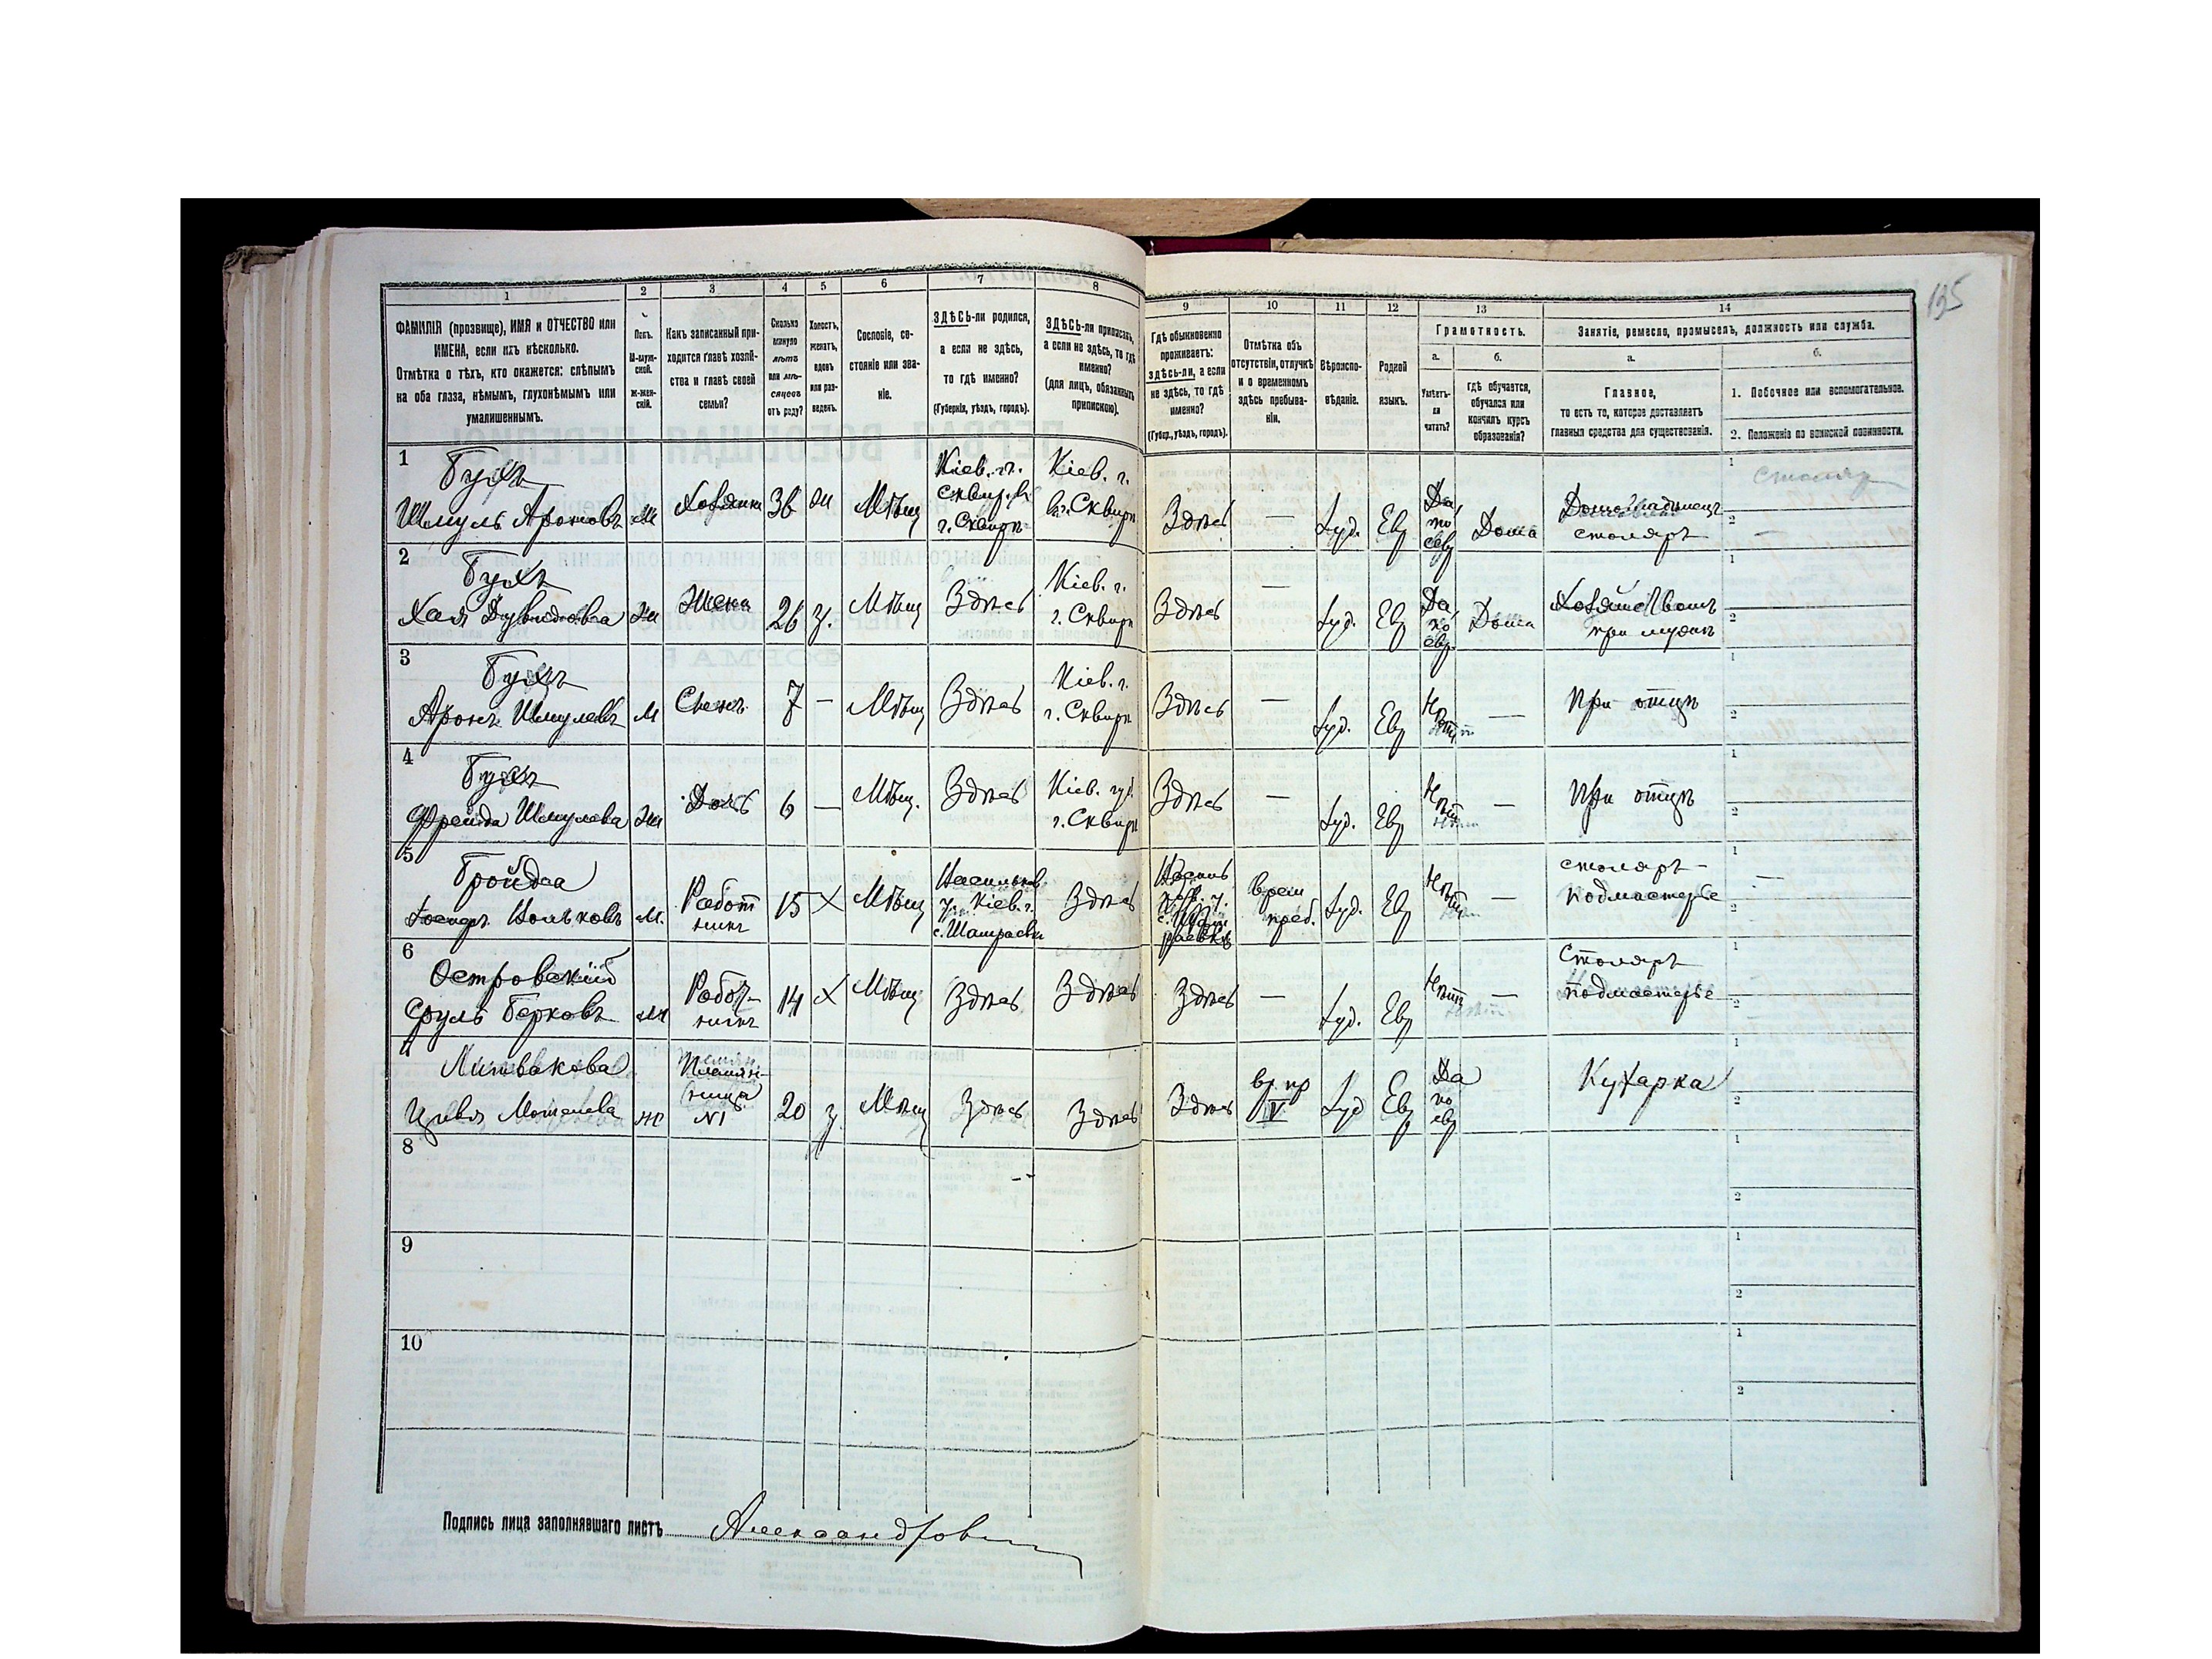 195
1
2
3
4
5
6
7
8
9
10
11
12
13
14
ФАМИЛІЯ (прозвище), ИМЯ и ОТЧЕСТВО или
ИМЕНА, если ихъ нѣсколько.
Отмѣтка о тѣхъ, кто окажется: слѣпымъ
на оба глаза, нѣмымъ, глухонѣмымъ или
умалишеннымъ.
Полъ.
М-муж-
ской.
Ж-жен-
скій.
Какъ записанный при-
ходится главѣ хозяй-
ства и главѣ своей
семьи?
Сколько
минуло
лѣтъ
или мѣ-
сяцевъ
отъ роду?
Холостъ,
женатъ,
вдовъ
или раз-
веденъ.
Сословіе, со-
стояніе или зва-
ніе.
ЗДѢСЬ-ли родился,
а если не здѣсь,
то гдѣ именно?
(Губернія, уѣздъ, городъ).
ЗДѢСЬ-ли приписанъ,
а если не здѣсь, то гдѣ
именно?
(для лицъ, обязанныхъ
припискою).
Гдѣ обыкновенно
проживаетъ:
здѣсь-ли, а если
не здѣсь, то гдѣ
именно?
(Губер., уѣздъ, городъ).
Отмѣтка объ
отсутствіи, отлучкѣ
и о временномъ
здѣсь пребыва-
ніи.
Вѣроиспо-
вѣданіе.
Родной
языкъ.
Грамотность.
а.
Умѣетъ-
ли
читать?
б.
Гдѣ обучается,
обучался или
кончилъ курсъ
образованія?
Занятіе, ремесло, промыселъ, должность или служба.
а.
Главное,
то есть то, которое доставляетъ
главныя средства для существованія.
б.
1. Побочное или вспомогательное.
2. Положеніе по воинской повинности.
1
Бухъ
Шмуль Ароновъ
М
Хозяинъ
36
Мѣщ
Кіев. г.
г. Сквирѣ
Кіев. г.
г. Сквирѣ
Здѣсь
—
Іуд.
Евр
Да,
по
евр
Дома
Домовладѣлецъ
столяръ
столяр
2
Бухъ
Хая Дувидова
Ж
Жена
26
з.
Мѣщ
Здѣсь
Кіев. г.
г. Сквирѣ
Здѣсь
—
Іуд.
Евр
Да,
по
евр.
Дома
при мужѣ
3
Бухъ
Аронъ Шмулевъ
М
Сынъ
7
—
Мѣщ
Здѣсь
Кіев. г.
г. Сквирѣ
Здѣсь
—
Іуд.
Евр
Нѣтъ
—
При отцѣ
4
Бухъ
Фрейда Шмулева
Ж
Дочь
6
—
Мѣщ.
Здѣсь
Кіев. губ.
г. Сквирѣ
Здѣсь
—
Іуд.
Евр
Нѣтъ
—
При отцѣ
5
Бройда
М.
Работ
никъ
15
Х
Мѣщ
Васильков.
у. Кіев. г.
Здѣсь
врем
преб.
Іуд.
Евр
Нѣтъ
—
столяръ-
подмастерье
6
Островскій
Сруль Берковъ
М
Работ-
никъ
14
Х
Мѣщ
Здѣсь
Здѣсь
Здѣсь
—
Іуд.
Евр
Нѣтъ
—
Столяръ
подмастерье
7
Литвакова
Цивья Мошелева
Ж
Племян-
ница
№1
20
з.
Мѣщ
Здѣсь
Здѣсь
Здѣсь
вр. пр
V
Іуд
Евр
Да
по
евр
Кухарка
8
9
10
Подпись лица заполнявшаго листъ